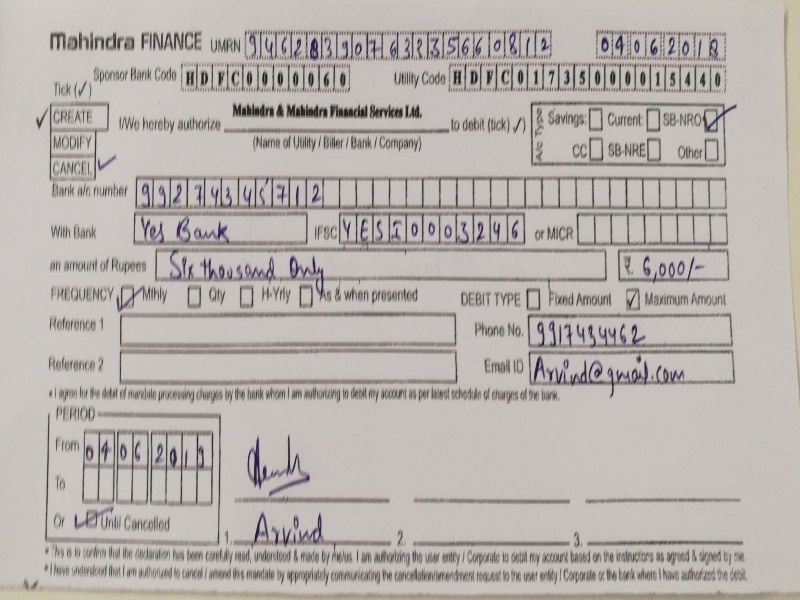 Mahindra FINANCE UMRN 946283907632356 60812 04062018
Sponsor Bank Code HDFC0000060 Utility Code HDFC01735000015440
Tick (✓)
CREATE
MODIFY
CANCEL
I/We hereby authorize Mahindra & Mahindra Financial Services Ltd. to debit (tick) ✓)
(Name of Utility / Biller / Bank / Company)
A/c Type Savings: Current: SB-NRO
CC SB-NRE Other
Bank a/c number 99274345712
With Bank Yes Bank IFSC YESI0003246 or MICR
an amount of Rupees Six thousand Only ₹ 6,000/-
FREQUENCY Mthly Qty H-Yrly As & when presented DEBIT TYPE Fixed Amount Maximum Amount
Reference 1 Phone No. 9917434462
Reference 2 Email ID Arvind@gmail.com
• I agree for the debit of mandate processing charges by the bank whom I am authorizing to debit my account as per latest schedule of charges of the bank.
PERIOD
From 04062019
To
Or Until Cancelled
1. Arvind 2. 3.
* This is to confirm that the declaration has been carefully read, understood & made by me/us. I am authorizing the user entity / Corporate to debit my account based on the instructions as agreed & signed by me.
* I have understood that I am authorized to cancel / amend this mandate by appropriately communicating the cancellation/amendment request to the user entity / Corporate or the bank where I have authorized the debit.